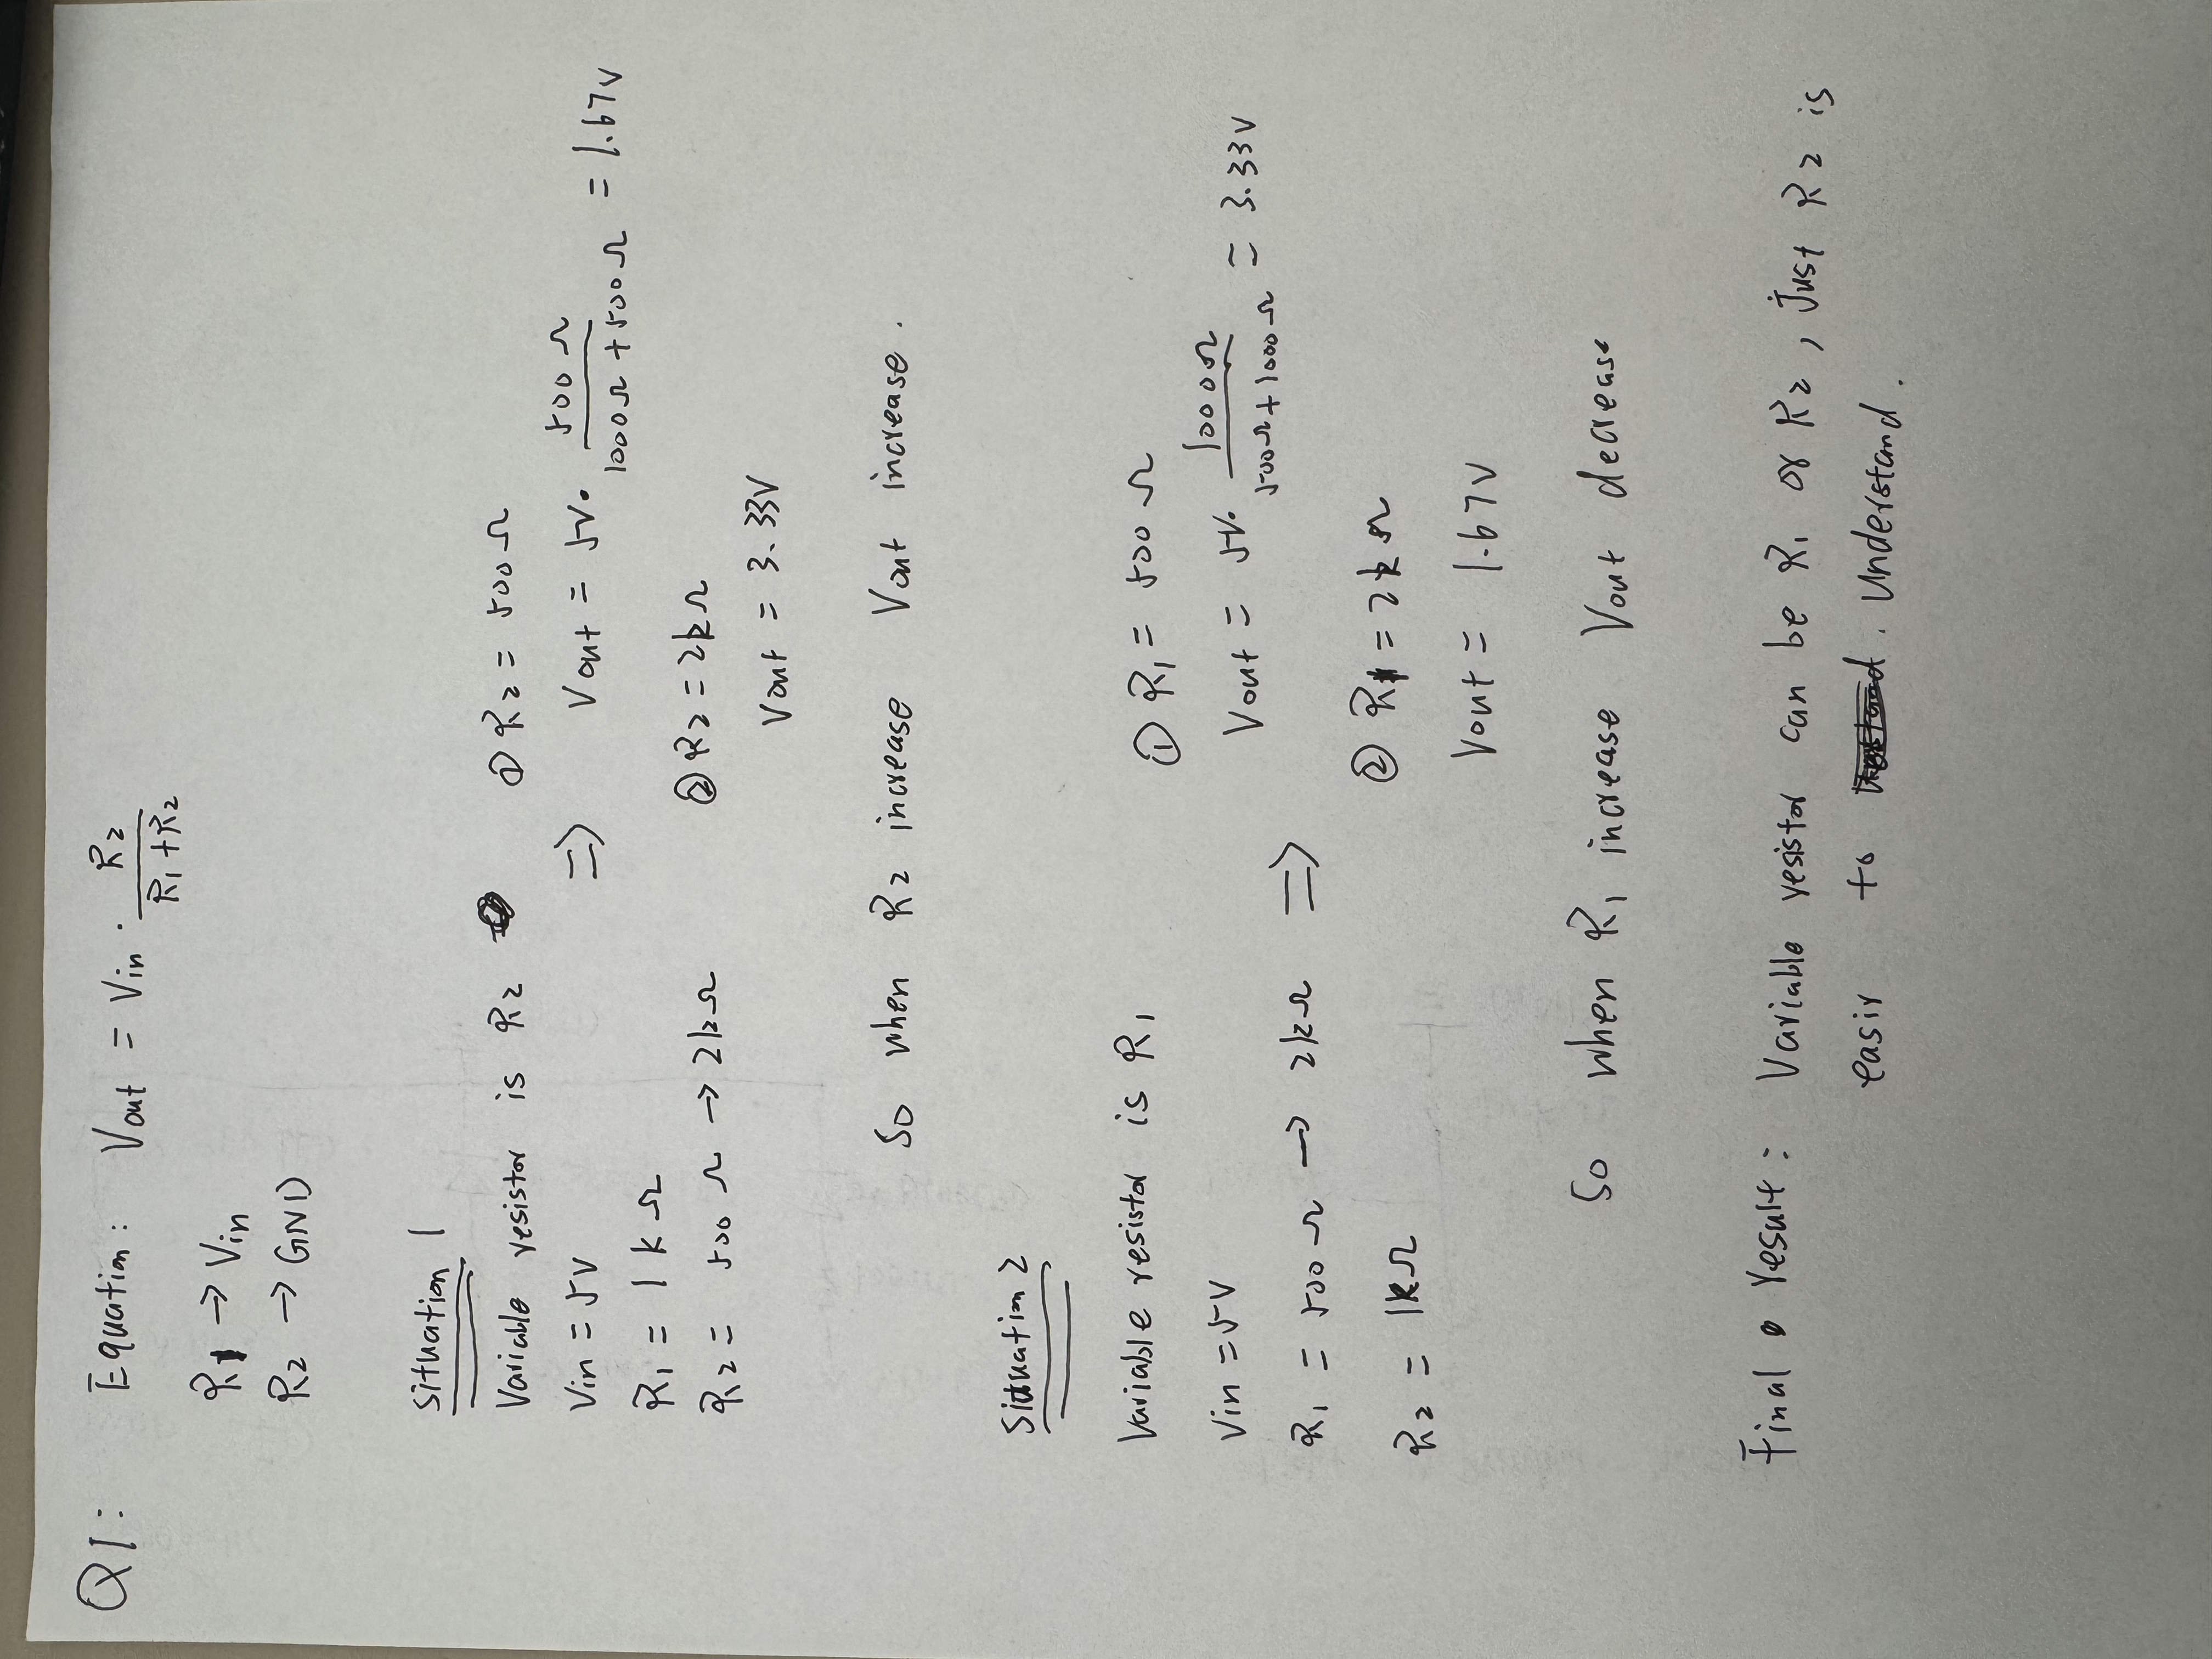 Q1: Equation: Vout = Vin · R2 / (R1 + R2)
R1 → Vin
R2 → GND
situation 1
Variable resistor is R2
Vin = 5V
R1 = 1 k Ω
R2 = 500 Ω → 2kΩ
⇒
① R2 = 500 Ω
Vout = 5V · 500 Ω / (1000Ω + 500Ω) = 1.67V
② R2 = 2kΩ
Vout = 3.33V
So when R2 increase Vout increase.
Situation 2
Variable resistor is R1
Vin = 5V
R1 = 500 Ω → 2kΩ
R2 = 1kΩ
⇒
① R1 = 500 Ω
Vout = 5V · 1000Ω / (500Ω + 1000Ω) = 3.33V
② R1 = 2kΩ
Vout = 1.67V
So when R1 increase Vout decrease
Final result: Variable resistor can be R1 or R2, Just R2 is
easir to . Understand.